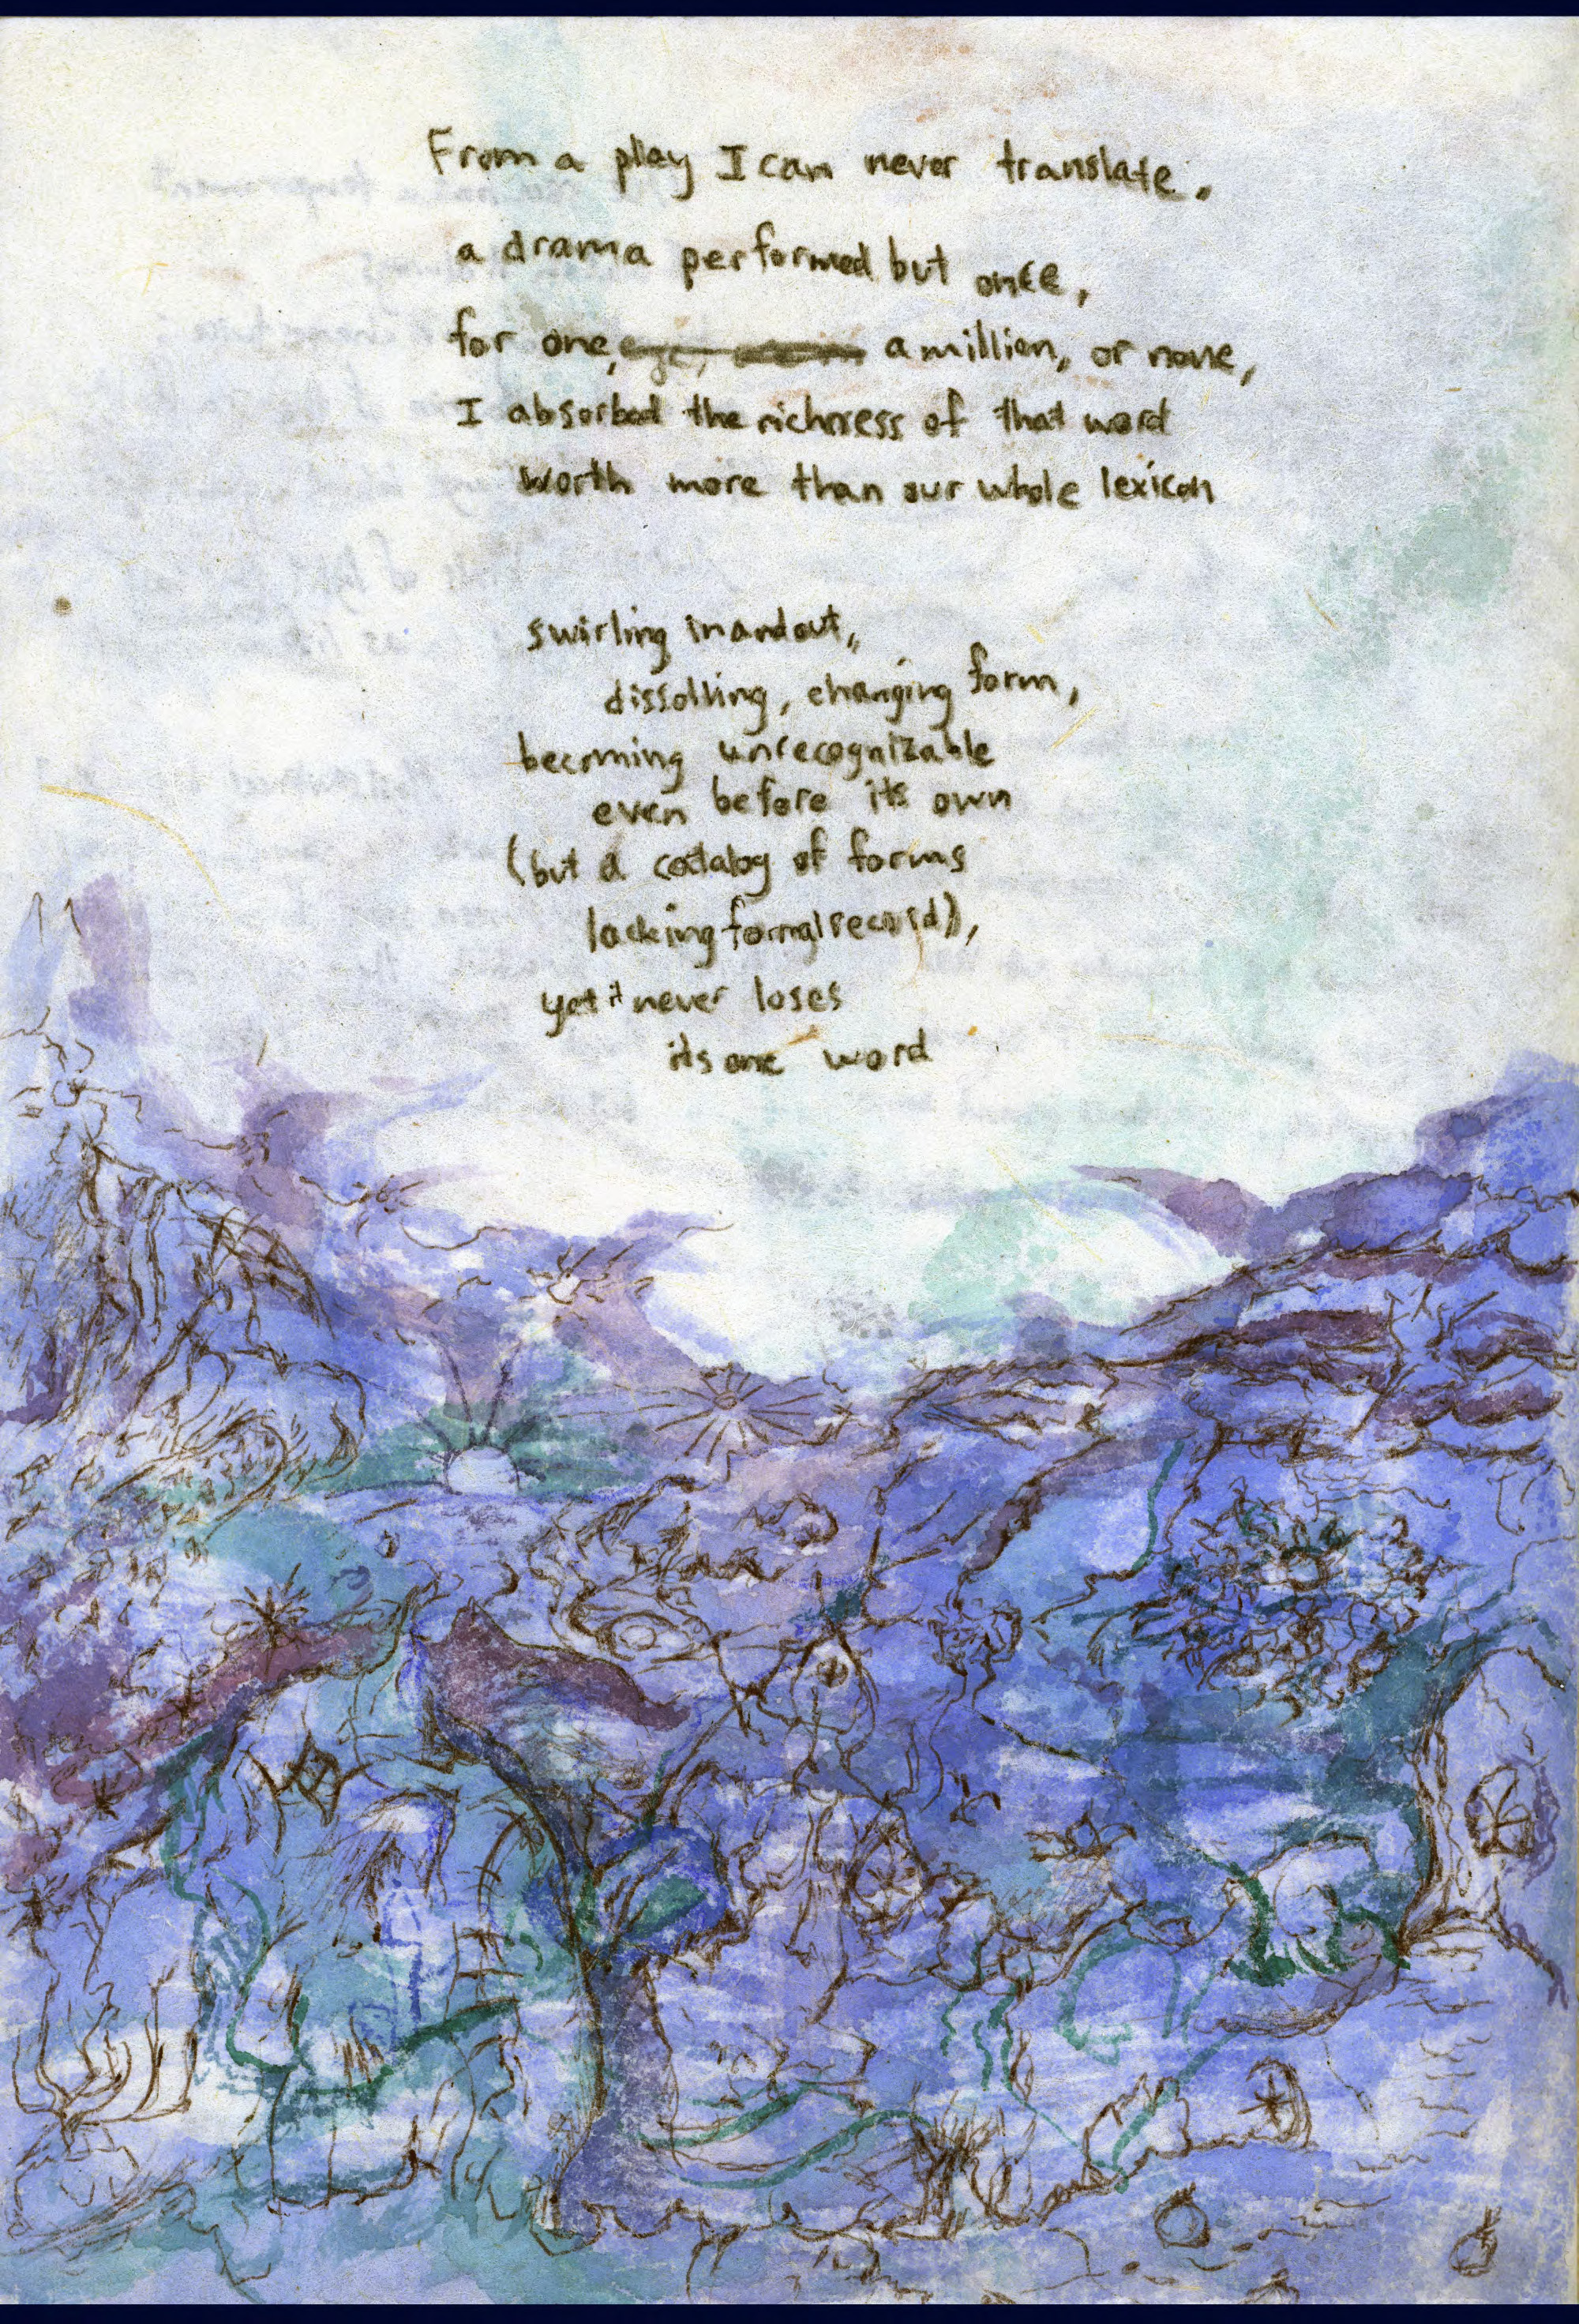 From a play I can never translate,
a drama performed but once,
for one, a million, or none,
I absorbed the richness of that word
worth more than our whole lexicon
swirling in and out,
dissolving, changing form,
becoming unrecognizable
even before its own
(but a catalog of forms
lacking formal record),
yet it never loses
its one word